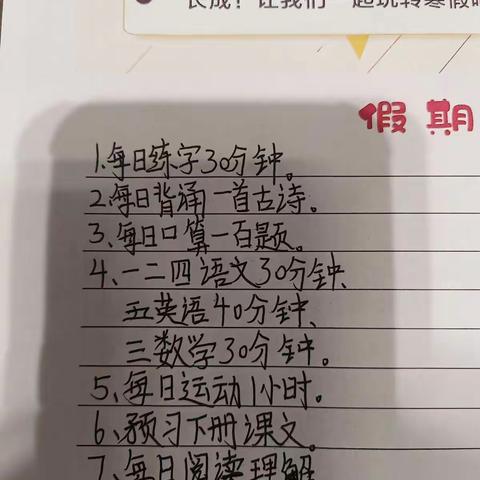 长成！让我们一起玩转寒假
假期
1.每日练字30分钟。
2.每日背诵一首古诗。
3、每日口算一百题。
4、一二四语文30分钟、
五英语40分钟、
三数学30分钟。
5、每日运动1小时。
6、预习下册课文。
7、每日阅读理解